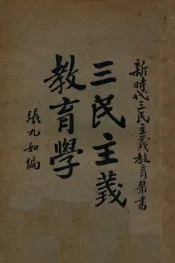 新時代三民主義教育叢書
三民主義
教育學
張九如編